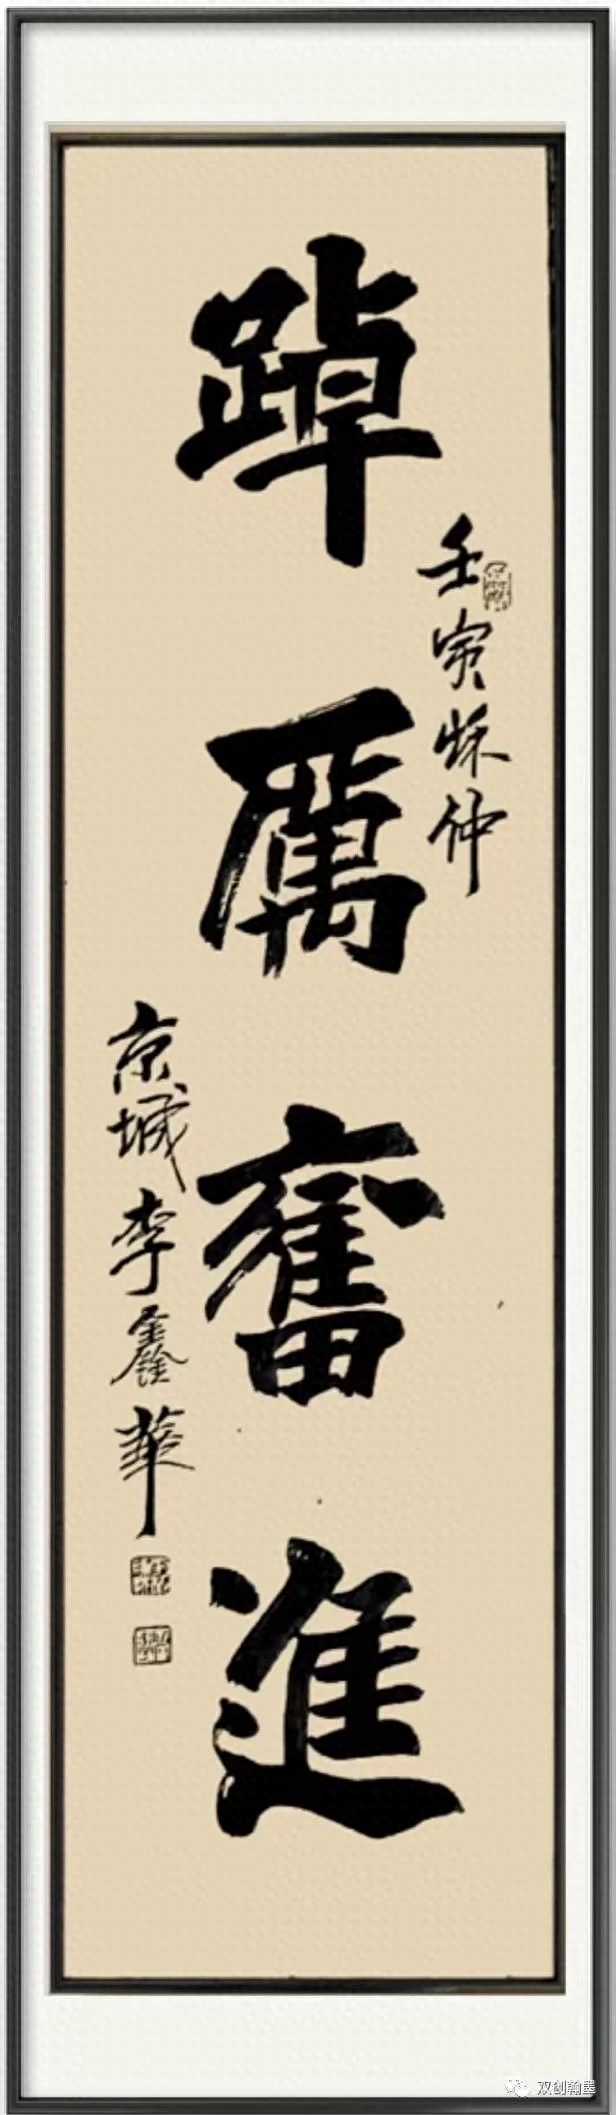 踔厲奮進
壬寅秌仲
京城李鑫華
双创翰墨